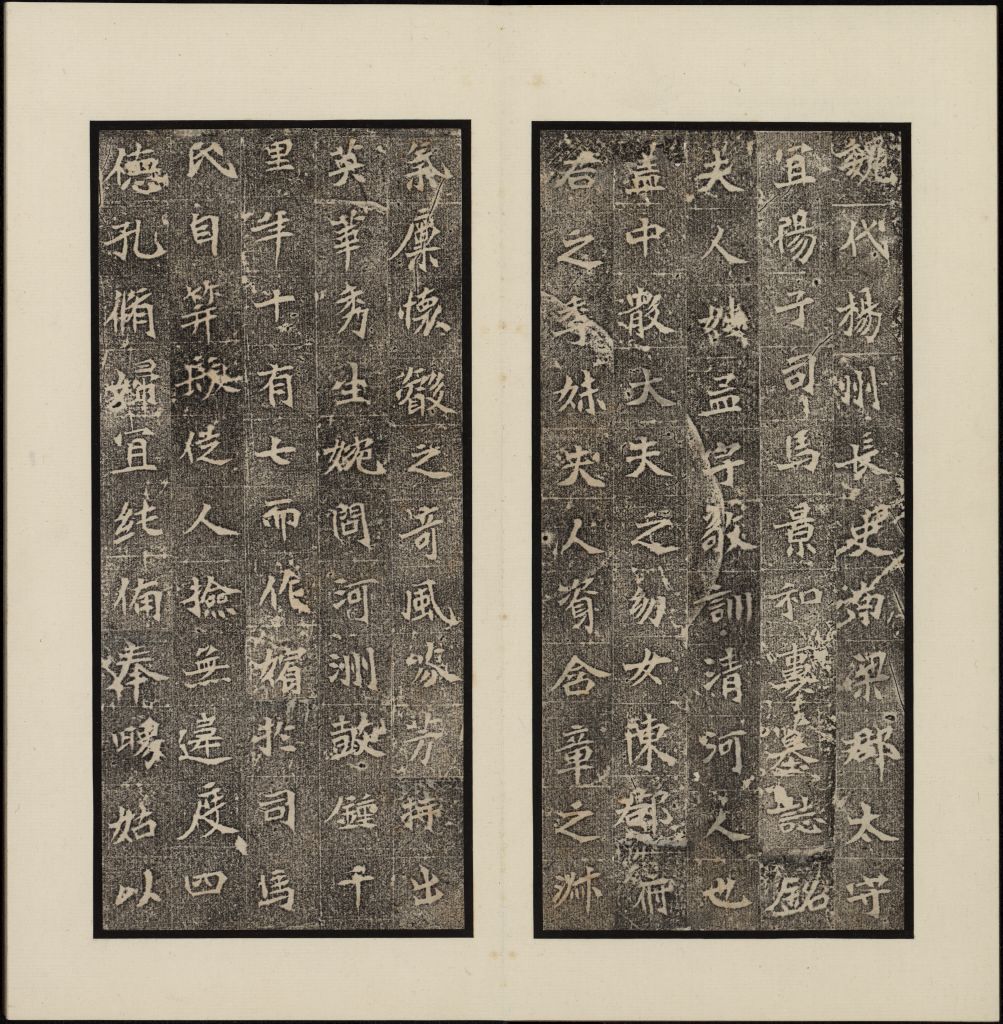 魏代楊州長史南梁郡太守
宜陽子司馬景和妻墓誌銘
夫人姓孟字敬訓清河人也
蓋中散大夫之幼女陳郡府
君之季妹夫人資含章之淑
氣稟懷叡之奇風芳特出
英華秀生婉問河洲鼓鍾千
里年十有七而作嬪於司馬
氏自笄從人撿無違度四
德孔脩婦宜純備奉舅姑以